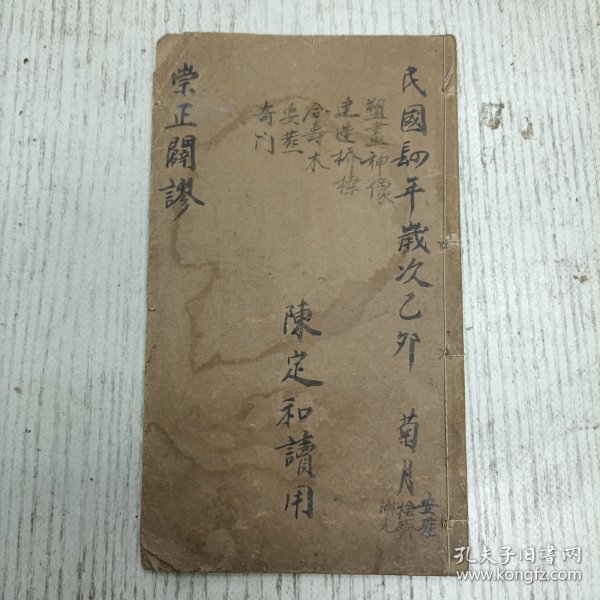 民國四年歲次乙卯 菊月
安座
開光
塑畫神像
建造桥樑
合壽木
安葬
奇门
陳定和讀用
崇正闢謬
孔夫子旧书网
www.kongfz.com